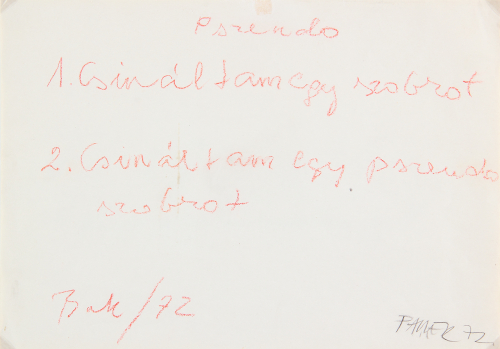 Pszendo
1. Csináltam egy szobrot
2. Csináltam egy pszendo
szobrot
Bak/72
PAUER 72